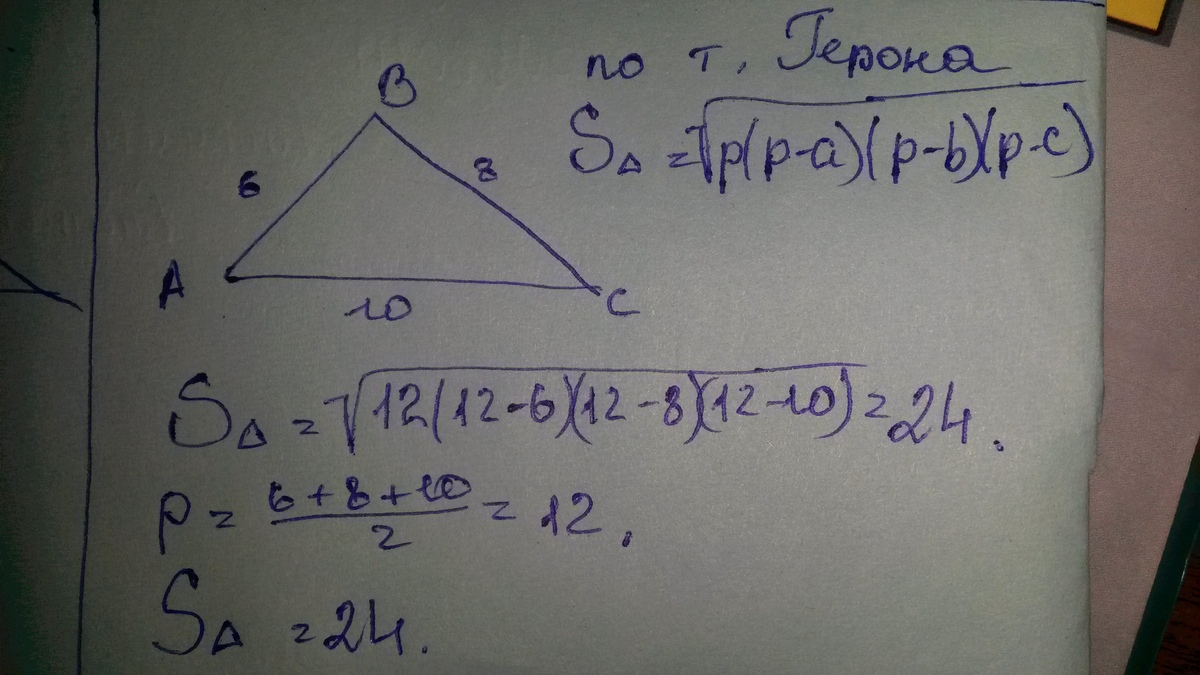 по т. Герона
S△ = √p(p-a)(p-b)(p-c)
B
6
8
A
10
C
S△ = √12(12-6)(12-8)(12-10) = 24.
p = (6+8+10)/2 = 12.
S△ = 24.